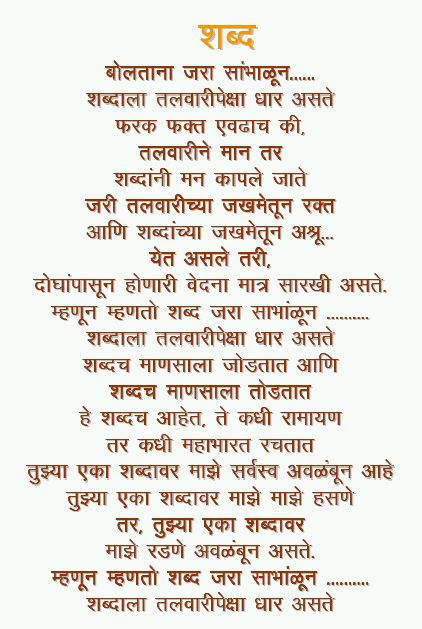 शब्द
बोलताना जरा सांभाळून......
शब्दाला तलवारीपेक्षा धार असते
फरक फक्त एवढाच की,
तलवारीने मान तर
शब्दांनी मन कापले जाते
जरी तलवारीच्या जखमेतून रक्त
आणि शब्दांच्या जखमेतून अश्रू...
येत असले तरी,
दोघांपासून होणारी वेदना मात्र सारखी असते.
म्हणून म्हणतो शब्द जरा साभांळून ..........
शब्दाला तलवारीपेक्षा धार असते
शब्दच माणसाला जोडतात आणि
शब्दच माणसाला तोडतात
हे शब्दच आहेत, ते कधी रामायण
तर कधी महाभारत रचतात
तुझ्या एका शब्दावर माझे सर्वस्व अवळंबून आहे
तुझ्या एका शब्दावर माझे माझे हसणे
तर, तुझ्या एका शब्दावर
माझे रडणे अवळंबून असते.
म्हणून म्हणतो शब्द जरा साभांळून ..........
शब्दाला तलवारीपेक्षा धार असते